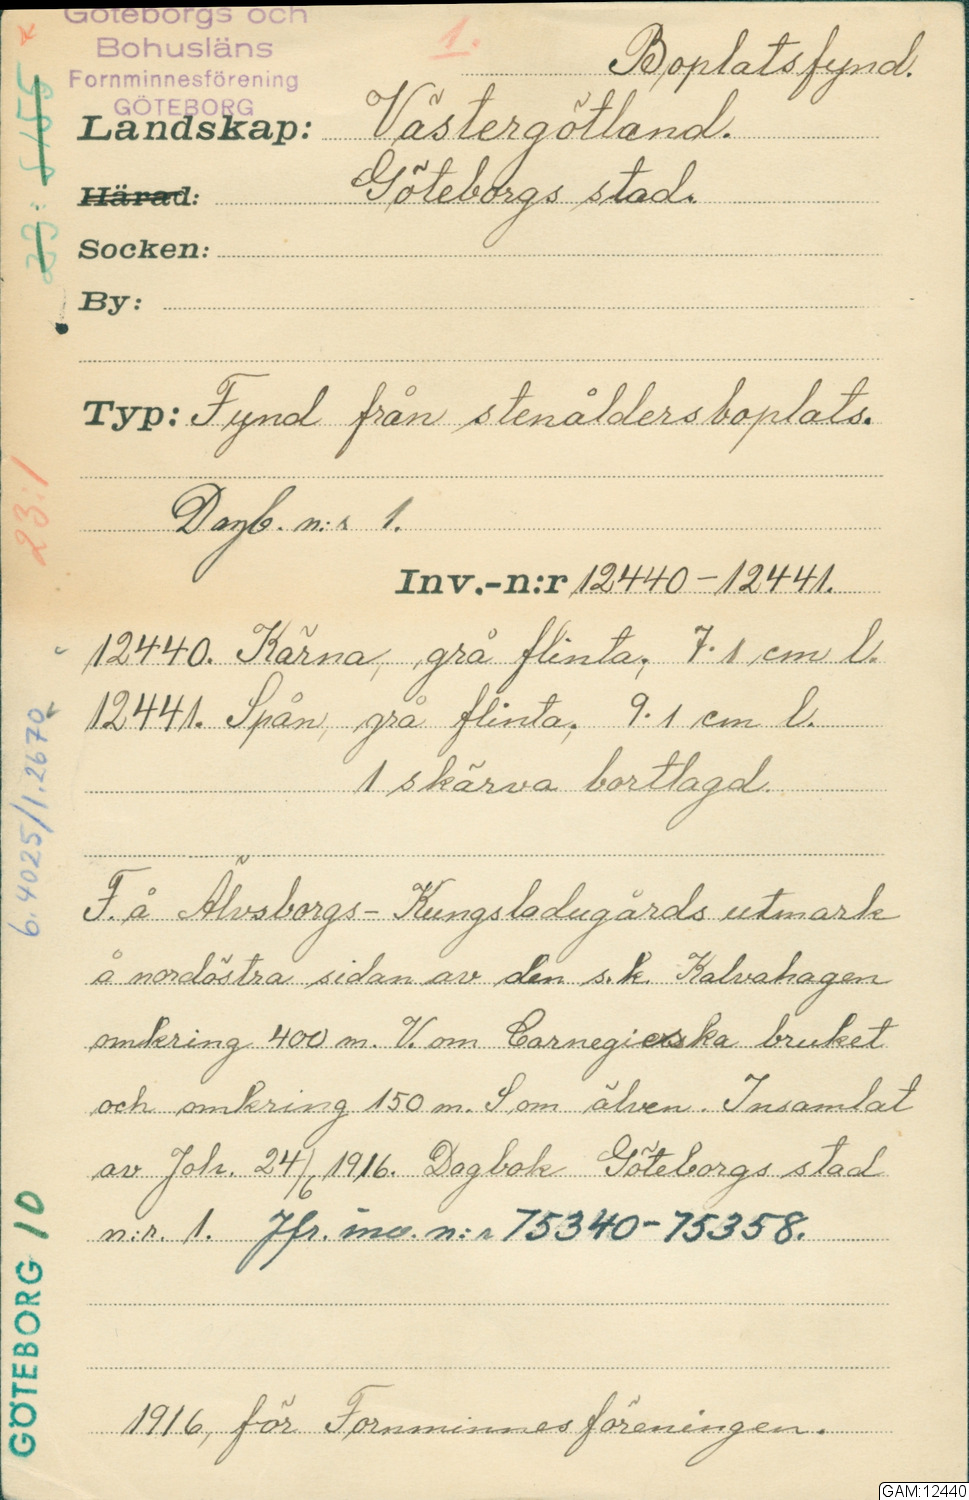 Göteborgs och
Bohusläns
Fornminnesförening
GÖTEBORG
1.
Boplatsfynd.
Landskap: Västergötland.
Härad: Göteborgs stad.
Socken:
By:
Typ: Fynd från stenåldersboplats.
Dagb. n:r 1.
Inv.-n:r 12440-12441.
12440. Kärna, grå flinta, 7.1 cm l.
12441. Spån, grå flinta, 9.1 cm l.
1 skärva bortlagd.
F. å Älvsborgs-Kungsladugårds utmark
å nordöstra sidan av den s.k. Kalvahagen
omkring 400 m. V. om Carnegieska bruket
och omkring 150 m. S om älven. Insamlat
av Joh. 24/6 1916. Dagbok Göteborgs stad
n:r. 1. Jfr. inv. n:r 75340-75358.
1916, för Fornminnesföreningen.
23:1
6.4025/1.2670
GÖTEBORG 10
GAM:12440